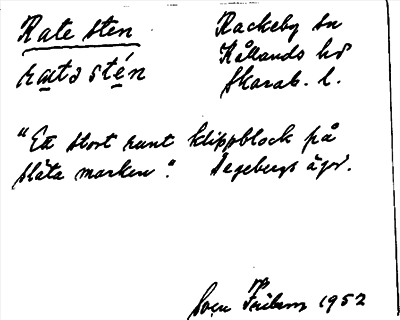 Rate sten
Rackeby sn
Kållands hd
Skarab. l.
"Ett stort runt klippblock på
släta marken". Segebergs ägor.
Sven
1952